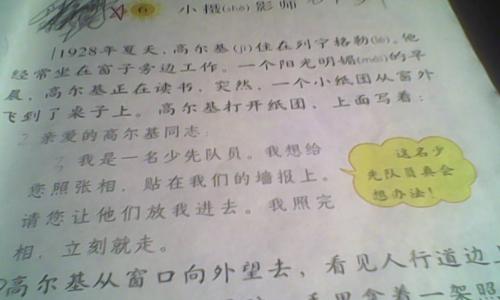 6 小摄(shè)影师
1928年夏天,高尔基(jī)住在列宁格勒(lè)。他
经常坐在窗子旁边工作。一个阳光明媚(mèi)的早
晨,高尔基正在读书,突然,一个小纸团从窗外
飞到了桌子上。高尔基打开纸团,上面写着:
2 亲爱的高尔基同志:
3 我是一名少先队员。我想给
您照张相,贴在我们的墙报上。
请您让他们放我进去。我照完
相,立刻就走。
这名少
先队员真会
想办法!
高尔基从窗口向外望去,看见人行道边上
拿着一架照